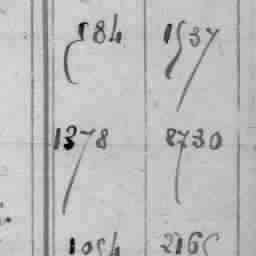 584 1537
1378 8730
1054 2165